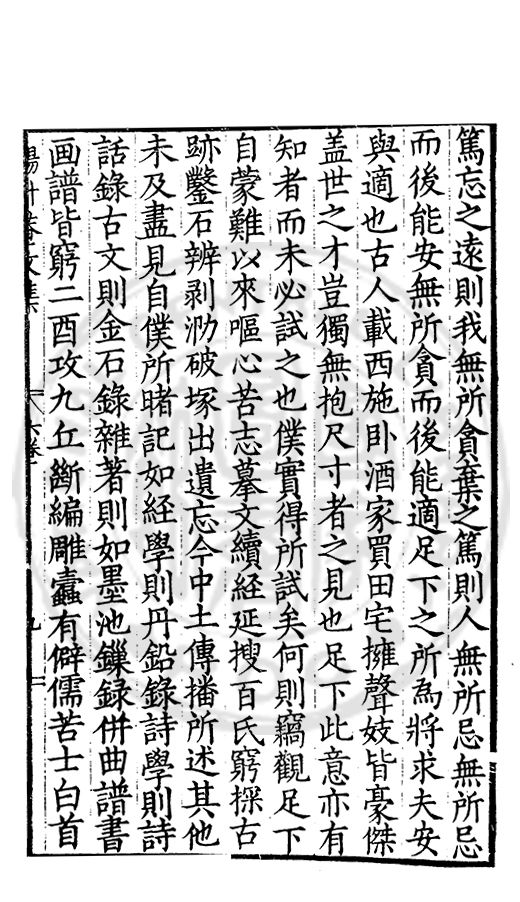 篤忘之遠則我無所貪棄之篤則人無所忌無所忌
而後能安無所貪而後能適足下之所為將求夫安
與適也古人載西施卧酒家買田宅擁聲妓皆豪傑
盖世之才豈獨無抱尺寸者之見也足下此意亦有
知者而未必試之也僕實得所試矣何則竊觀足下
自蒙難以來嘔心苦志摹文續經延搜百氏窮探古
跡鑿石辨剥泐破塚出遺忘今中土傳播所述其他
未及盡見自僕所睹記如経學則丹鉛錄詩學則詩
話錄古文則金石錄雜著則如墨池鏁録併曲譜書
画譜皆窮二酉攻九丘斷編雕蠹有僻儒苦士白首